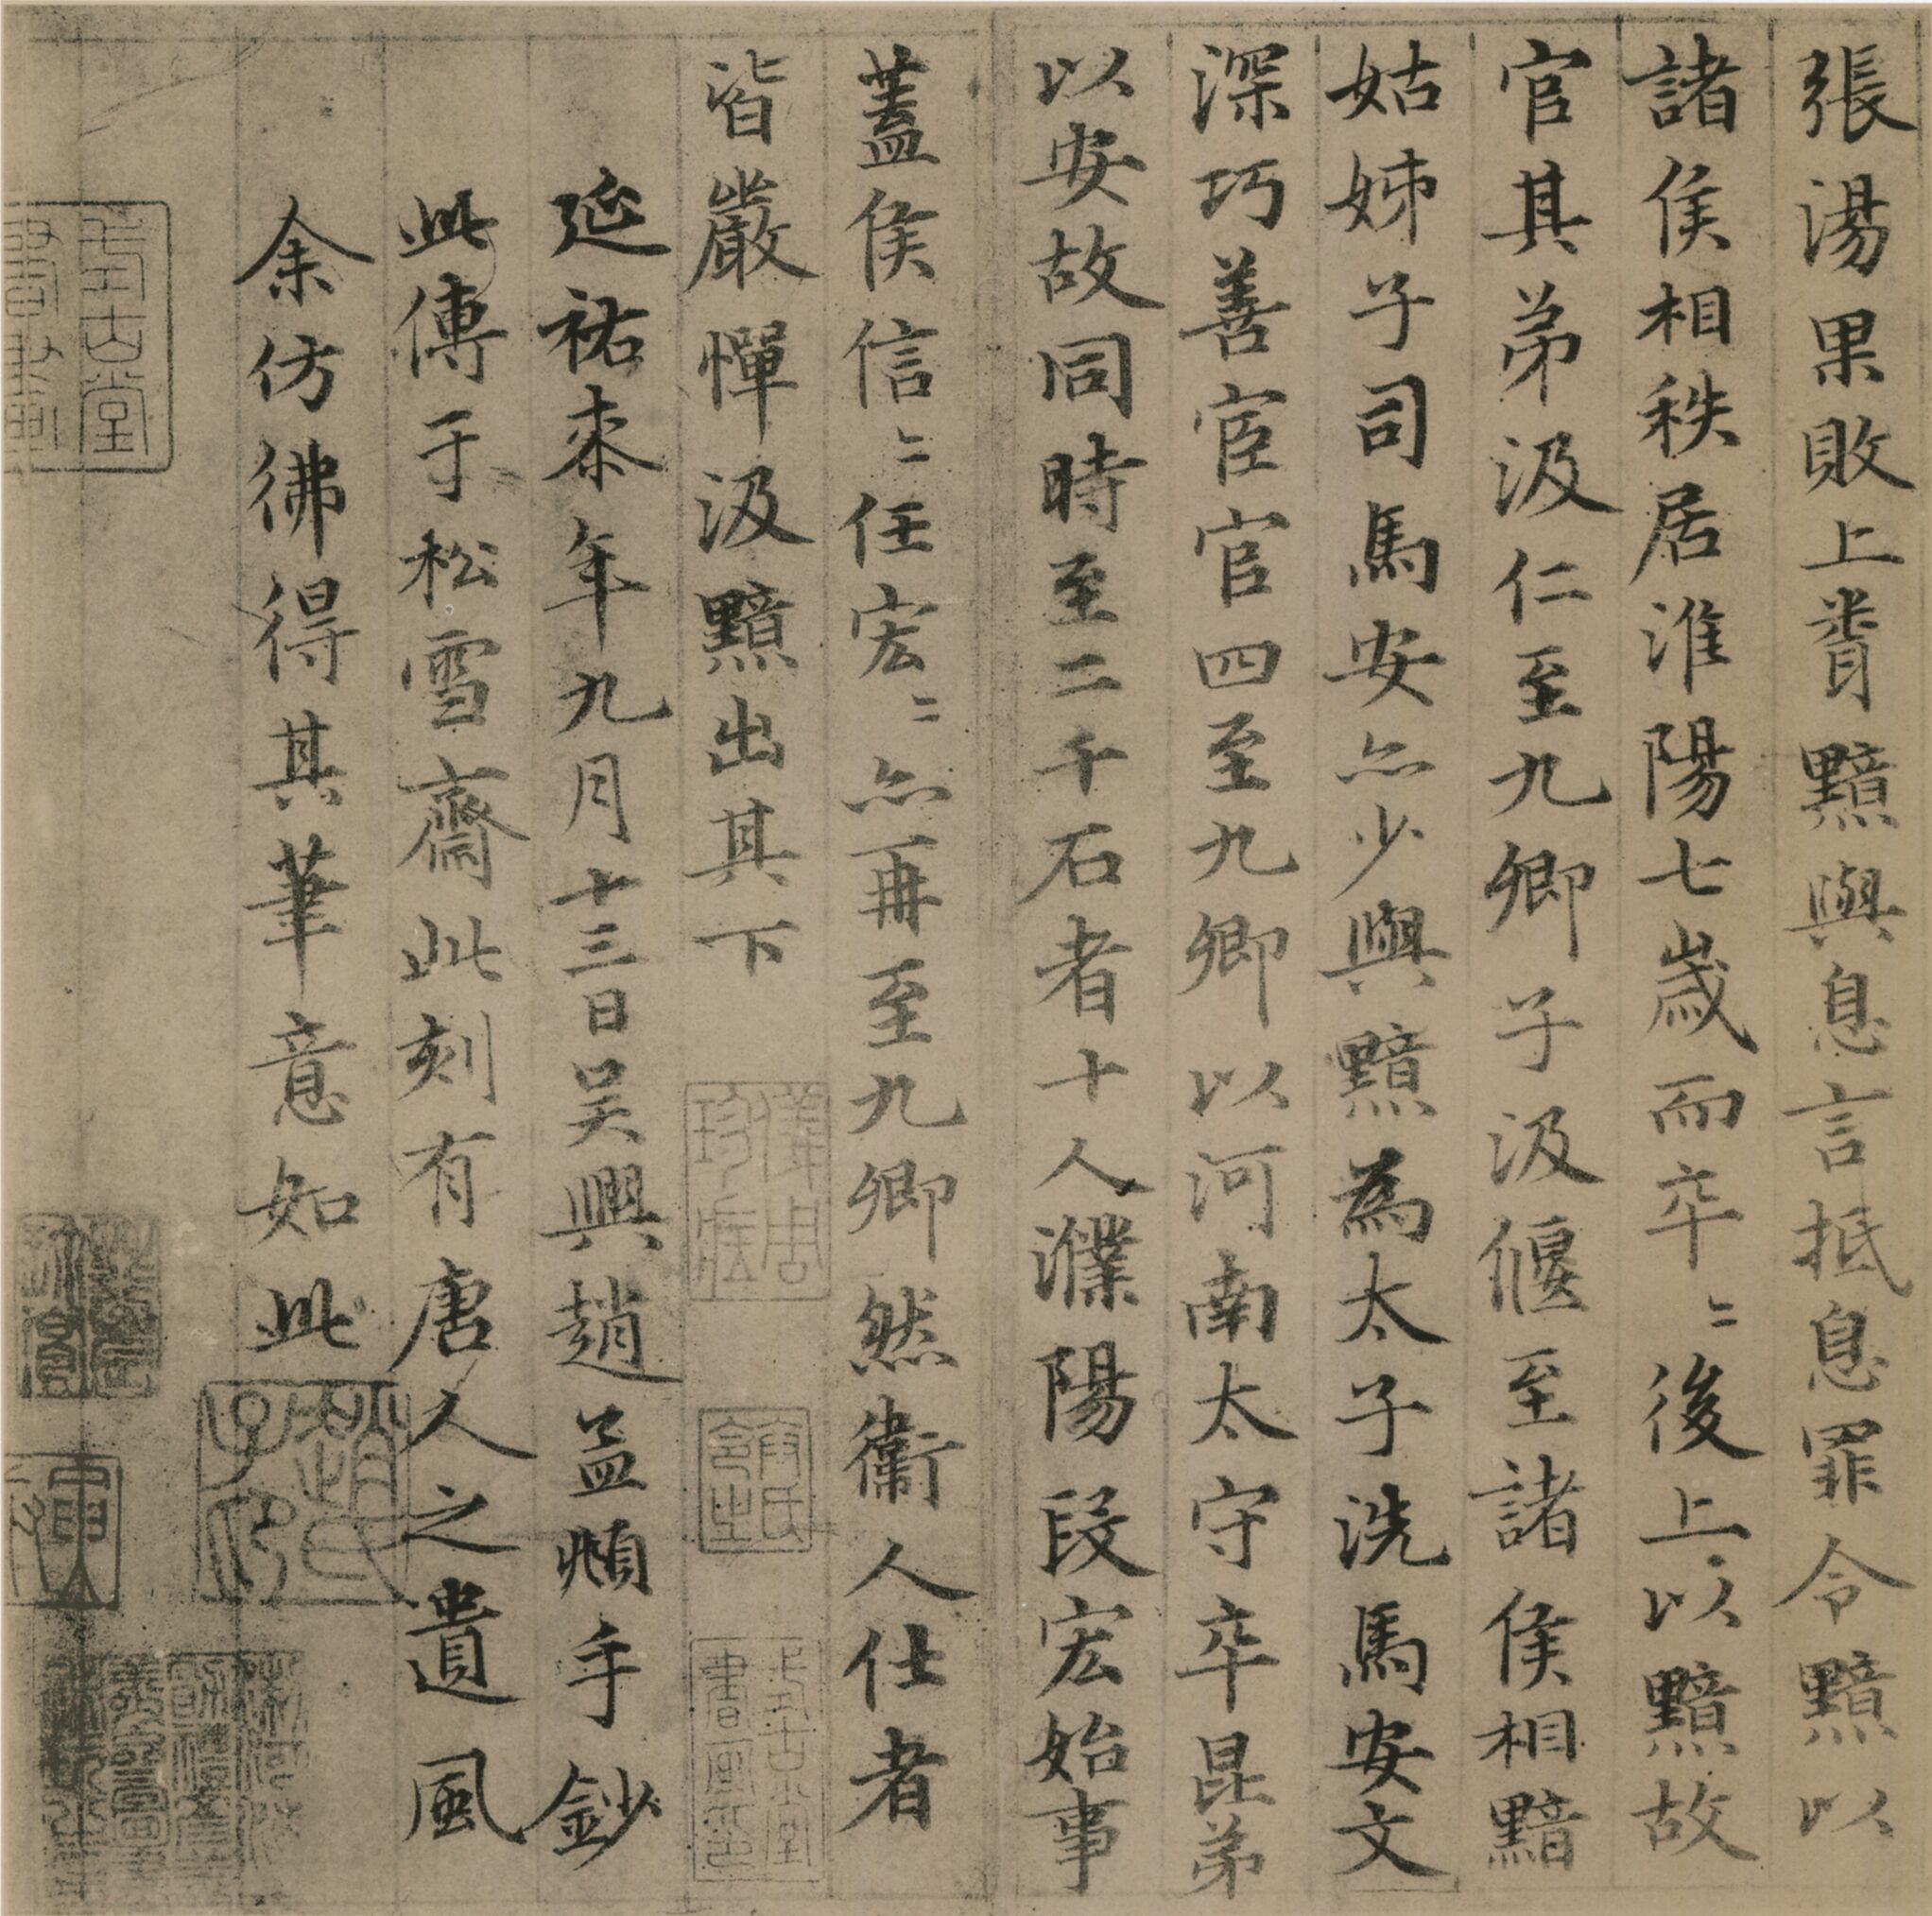 張湯果敗上聞黯與息言抵息罪令黯以
諸侯相秩居淮陽七歲而卒〻後上以黯故
官其弟汲仁至九卿子汲偃至諸侯相黯
姑姊子司馬安亦少與黯為太子洗馬安文
深巧善宦官四至九卿以河南太守卒昆弟
以安故同時至二千石者十人濮陽段宏始事
蓋侯信〻任宏〻亦再至九卿然衛人仕者
皆嚴憚汲黯出其下
延祐柒年九月十三日吴興趙孟頫手鈔
此傳于松雪齋此刻有唐人之遺風
余仿彿得其筆意如此
趙氏子昂